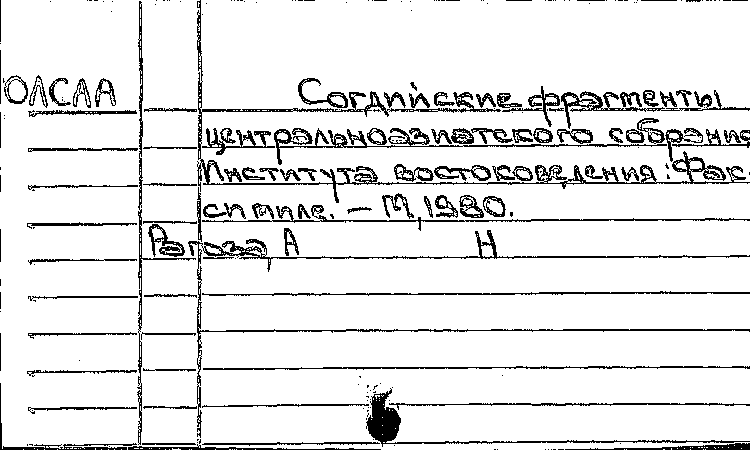 ОЛСАА Согдийские фрагменты
центральноазиатского собрания
Института востоковедения: Фак-
симиле. – М, 1980.
Рагоза, А Н